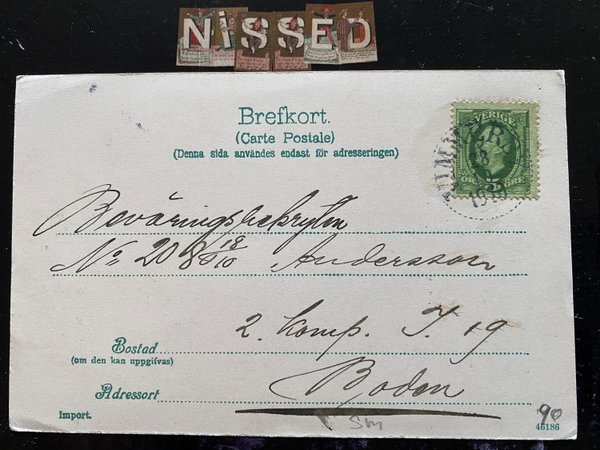 NiSSED
Brefkort.
(Carte Postale)
(Denna sida användes endast för adresseringen)
SVERIGE
5
ÖRE
Beväringsrekryten
No 208 18/10 Andersson
2. komp. I. 19
Bostad
(om den kan uppgifvas)
Boden
Adressort
Import.
90
46186